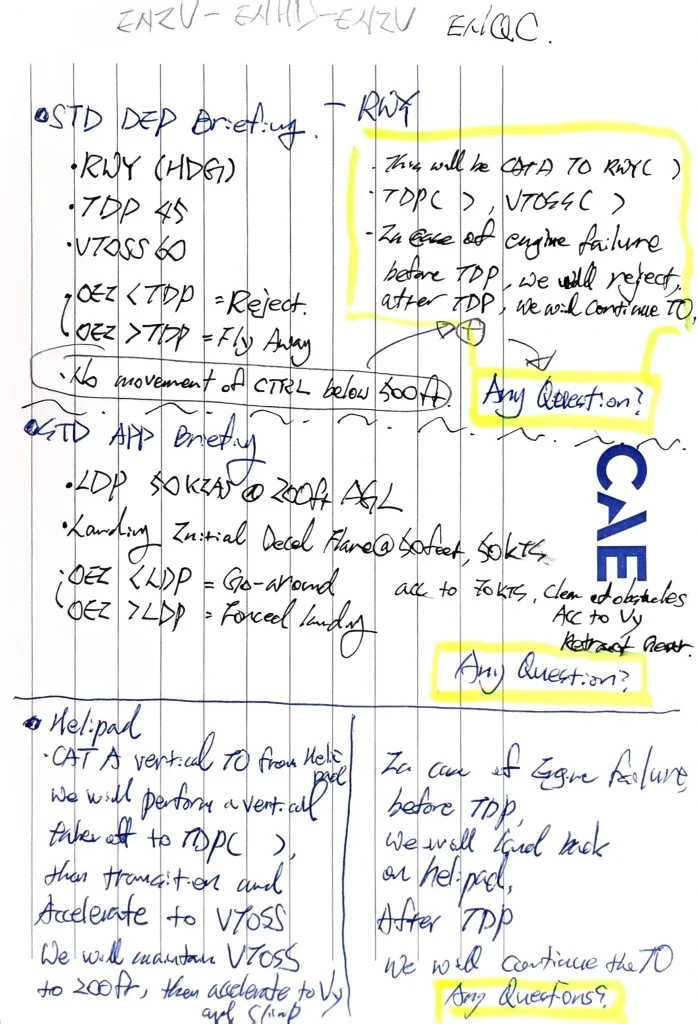 ENZV - ENHD - ENZV ENQC.
• STD DEP Briefing. - RWY
• RWY (HDG)
• TDP 45
• VTOSS 60
OEI < TDP = Reject.
OEI > TDP = Fly Away
• No movement of CTRL below 500ft.
• This will be CAT A TO RWY( )
• TDP( ), VTOSS( )
- In case of engine failure
before TDP, we will reject,
after TDP, we will continue TO,
+
Any Question?
• STD APP Briefing
• LDP 50KIAS @ 200ft AGL
• Landing Initial Decel Flare @ 50feet, 50KTS
• OEI < LDP = Go-around
OEI > LDP = Forced landing
acc to 70KTS, Clear of obstacles
Acc to Vy
Retract Gear.
Any Question?
CAE
• Helipad
• CAT A vertical TO from Helipad
We will perform a vertical
take off to TDP( ),
then transition and
Accelerate to VTOSS
We will maintain VTOSS
to 200ft, then accelerate to Vy
and climb
In case of Engine failure,
before TDP,
we will land back
on helipad,
After TDP
we will continue the TO
Any Questions?